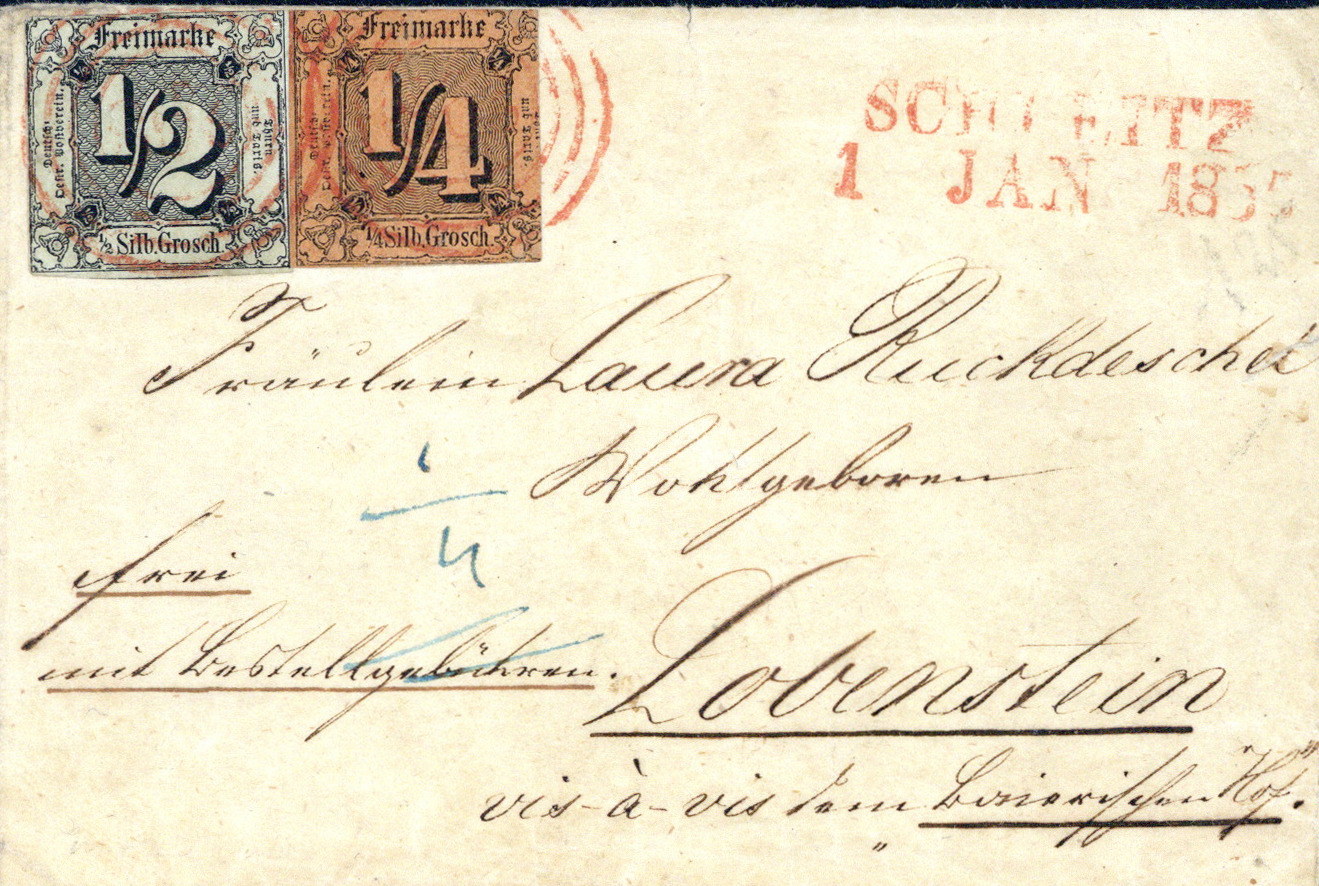 Freimarke
1/2
Deutsch-
Oestr. Postverein.
Thurn
und Taxis.
1/2 Silb. Grosch.
Freimarke
1/4
Deutsch-
Oestr. Postverein.
und Taxis.
1/4 Silb. Grosch.
SCHLEITZ
1 JAN
Fräulein Laura Ruckdeschel
Wohlgeboren
1/4
frei
mit Bestellgebühren.
Lobenstein
vis-à-vis dem Baierischen Hof."